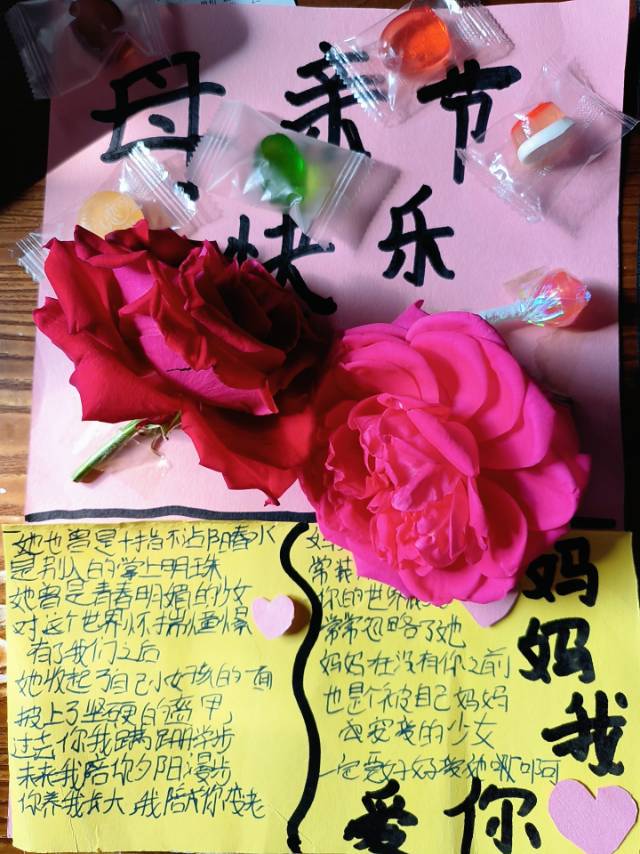 母亲节
快乐
她也曾是十指不沾阳春水
是别人的掌上明珠
她曾是青春明媚的少女
对这个世界怀揣憧憬
有了我们之后
她收起了自己小女孩的一面
披上了坚硬的盔甲
过去你我蹒跚学步
未来我陪你夕阳漫步
你养我长大,我陪你变老
妈
常装
你的世界
常常忽略了她
妈妈在没有你之前
也是个被自己妈妈
宠爱的少女
一定要好好爱她啊
妈妈我
爱你